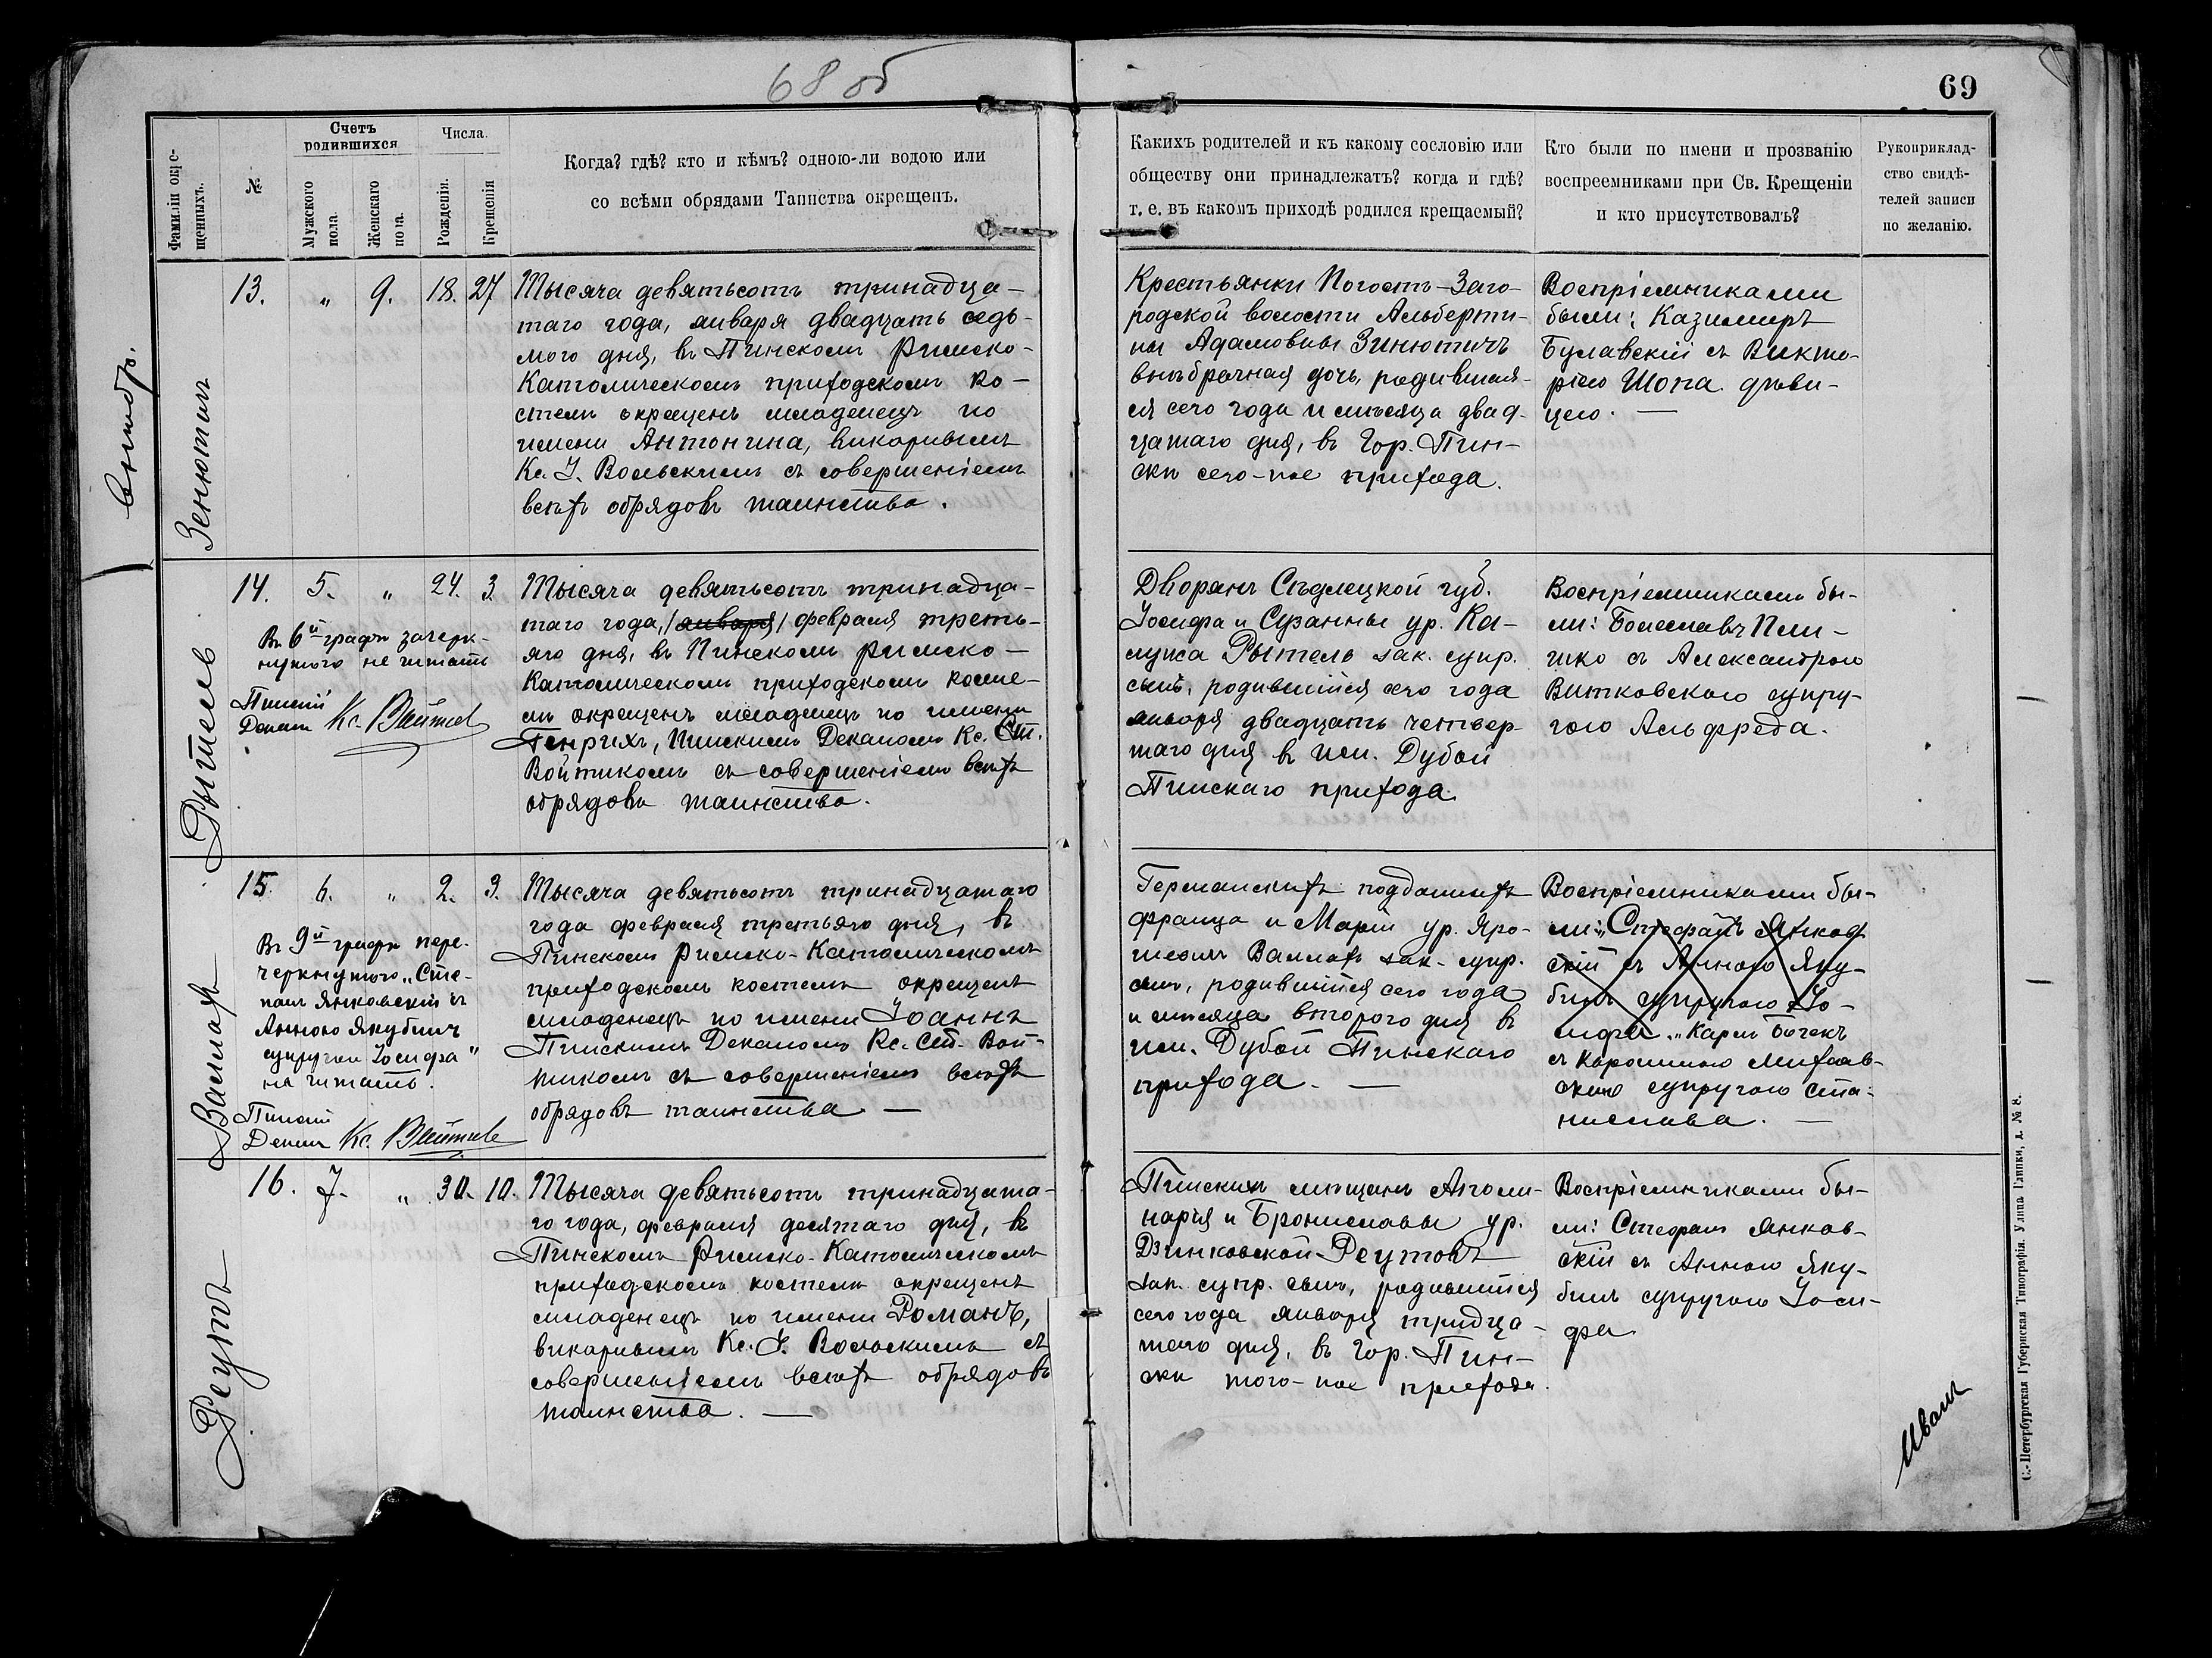 68 об
69
Фамиліи окре-
щенныхъ.
№
Счетъ
родившихся
Мужского
пола.
Женскаго
пола.
Числа.
Рожденія.
Крещенія
Когда? гдѣ? кто и кѣмъ? одною-ли водою или
со всѣми обрядами Таинства окрещенъ.
Какихъ родителей и къ какому сословію или
обществу они принадлежатъ? когда и гдѣ?
т. е. въ какомъ приходѣ родился крещаемый?
Кто были по имени и прозванію
воспреемниками при Св. Крещеніи
и кто присутствовалъ?
Рукоприклад-
ство свидѣ-
телей записи
по желанію.
внѣбр.
Зенютичъ
13. „ 9. 18. 27
Тысяча девятьсотъ тринадца-
таго года, января двадцать седь-
мого дня, въ Пинскомъ Римско-
Католическомъ приходскомъ ко-
стелѣ окрещенъ младенецъ по
имени Антонина, викарнымъ
Кс. І. Вольскимъ съ совершеніемъ
всѣхъ обрядовъ таинства.
Крестьянки Погостъ-Заго-
родской волости Альберти-
ны Адамовны Зинютичъ
внѣбрачная дочь, родившая-
ся сего года и мѣсяца двад-
цатаго дня, въ гор. Пин-
скѣ сего-же прихода.
Воспріемниками
были: Казимиръ
Булавскій съ Викто-
ріею Шопа дѣви-
цею. —
Рытель
14. 5. „ 24. 3.
Въ 6й графѣ зачерк-
нутого не читать
Пинскій
Деканъ Кс. Войтик
Тысяча девятьсотъ тринадца-
таго года, /января/ февраля треть-
яго дня, въ Пинскомъ Римско-
Католическомъ приходскомъ косте-
лѣ окрещенъ младенецъ по имени
Генрихъ, Пинскимъ Деканомъ Кс. Ст.
Войтикомъ съ совершеніемъ всѣхъ
обрядовъ таинства.
Дворянъ Сѣдлецкой губ.
Іосифа и Сузанны ур. Ка-
лужа Рытель зак. супр.
сынъ, родившійся сего года
января двадцать четвер-
таго дня въ им. Дубой
Пинскаго прихода.
Воспріемниками бы-
ли: Болеславъ
съ Александрою
Витковскою супру-
гою Альфреда.
Валлахъ
15. 6. „ 2. 3.
Въ 9й графѣ пере-
черкнутого „Сте-
панъ Янковскій съ
Анною Якубикъ
супругою Іосифа"
не читать.
Пинскій
Деканъ Кс. Войтик
Тысяча девятьсотъ тринадцатаго
года февраля третьяго дня, въ
Пинскомъ Римско-Католическомъ
приходскомъ костелѣ окрещенъ
младенецъ по имени Іоаннъ
Пинскимъ Деканомъ Кс. Ст. Вой-
тикомъ съ совершеніемъ всѣхъ
обрядовъ таинства —
Германскихъ подданныхъ
Франца и Маріи ур. Яро-
Валлахъ зак. супр.
сынъ, родившійся сего года
и мѣсяца второго дня въ
им. Дубой Пинскаго
прихода. —
Воспріемниками бы-
ли: „Стефанъ Янков-
скій съ Анною Яку-
бикъ супругою Іо-
сифа." Карлъ Бочекъ
съ Каролиною Михалв-
скою супругою Ста-
нислава. —
Реутъ
16. 7. „ 30. 10.
Тысяча девятьсотъ тринадцата-
го года, февраля десятаго дня, въ
Пинскомъ Римско-Католическомъ
приходскомъ костелѣ окрещенъ
младенецъ по имени Романъ,
викарнымъ Кс. І. Вольскимъ съ
совершеніемъ всѣхъ обрядовъ
таинства. —
Пинскихъ мѣщанъ Аполи-
нарія и Брониславы ур.
Дзинковской Реутовъ
зак. супр. сынъ, родившійся
сего года января тридца-
таго дня, въ гор. Пин-
скѣ того-же прихода.
Воспріемниками бы-
ли: Стефанъ Янков-
скій съ Анною Яку-
бикъ супругою Іоси-
фа.
С.-Петербургская Губернская Типографія. Улица Глинки, д. № 8.